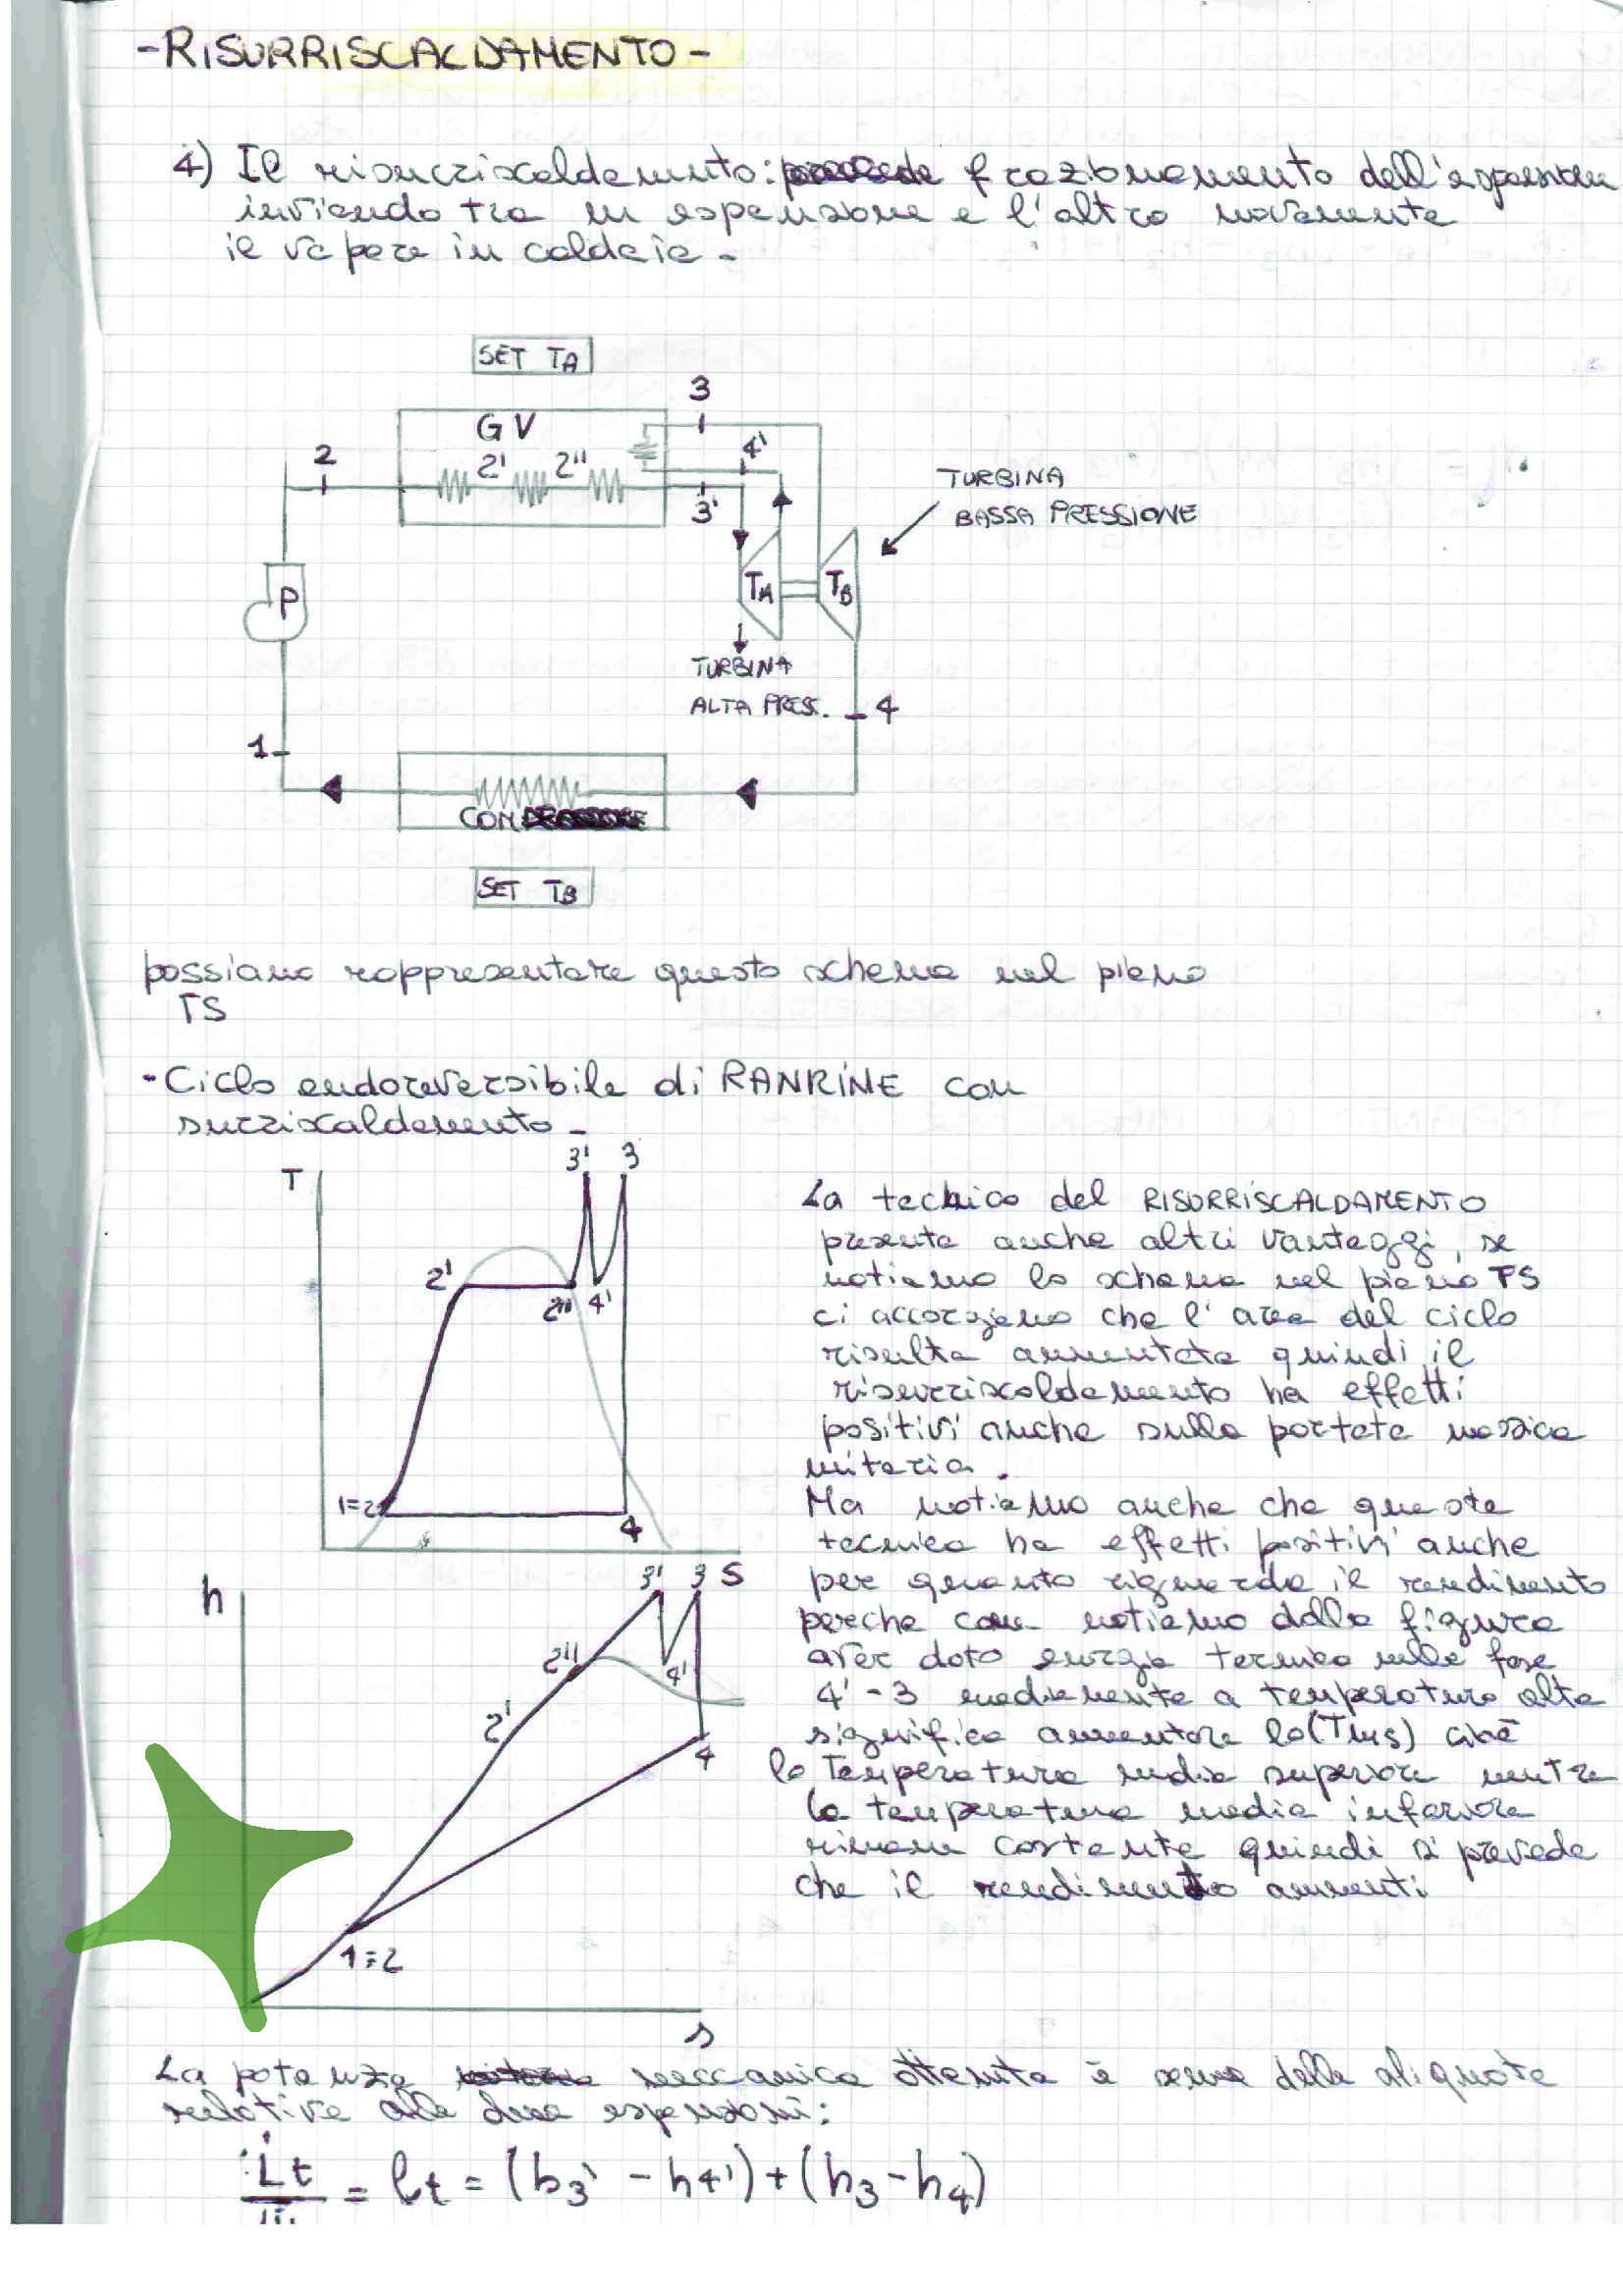 -RISURRISCALDAMENTO-
4) Il risurriscaldamento: frazionamento dell'espansione
inviando tra un espansione e l'altra novamente
il vapore in caldaia.
SET TA
3
GV
4'
2
2' 2"
3'
TURBINA
BASSA PRESSIONE
P
TA
TB
TURBINA
ALTA PRES.
4
1
CON
SET TB
possiamo rappresentare questo schema nel piano
TS
- Ciclo endoreversibile di RANKINE con
surriscaldamento -
T
3' 3
2'
2" 4'
1=2
4
S
La tecnica del RISURRISCALDAMENTO
presenta anche altri vantaggi, se
notiamo lo schema nel piano TS
ci accorgiamo che l'area del ciclo
risulta aumentata quindi il
risurriscaldamento ha effetti
positivi anche sulla portata massica
unitaria.
Ma notiamo anche che questa
tecnica ha effetti positivi anche
per quanto riguarda il rendimento
perche come notiamo dalla figura
aver dato energia termica nella fase
4'-3 mediamente a temperatura alta
significa aumentare la (Tms) cioè
la Temperatura media superiore mentre
la temperatura media inferiore
rimane costante quindi si prevede
che il rendimento aumenti
h
3' 3
2"
4'
2'
4
1=2
s
La potenza meccanica ottenuta è somma delle aliquote
relative alle due espansioni:
L̇t/ṁ = lt = (h3' - h4') + (h3 - h4)